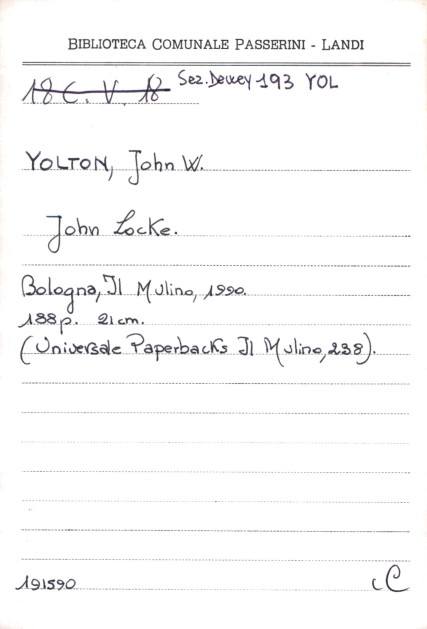 BIBLIOTECA COMUNALE PASSERINI - LANDI
18 C. V. 18 Sez. Dewey 193 YOL
YOLTON, John W.
John Locke.
Bologna, Il Mulino, 1990.
188 p. 21 cm.
(Universale Paperbacks Il Mulino, 238).
191590